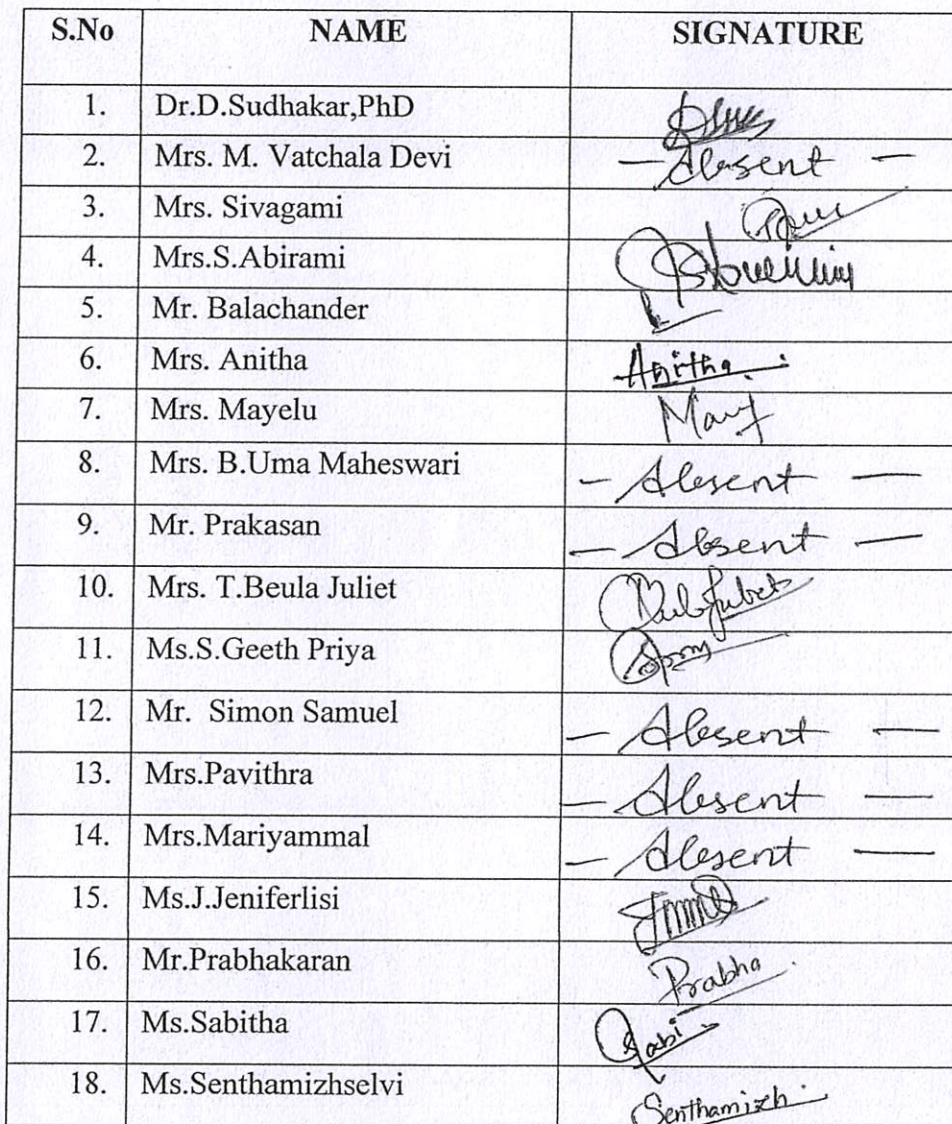 S.No NAME SIGNATURE
1. Dr.D.Sudhakar,PhD
2. Mrs. M. Vatchala Devi - Absent -
3. Mrs. Sivagami
4. Mrs.S.Abirami
5. Mr. Balachander
6. Mrs. Anitha Anitha
7. Mrs. Mayelu
8. Mrs. B.Uma Maheswari - Absent -
9. Mr. Prakasan - Absent -
10. Mrs. T.Beula Juliet
11. Ms.S.Geeth Priya
12. Mr. Simon Samuel - Absent -
13. Mrs.Pavithra - Absent -
14. Mrs.Mariyammal - Absent -
15. Ms.J.Jeniferlisi
16. Mr.Prabhakaran Prabha
17. Ms.Sabitha Sabi
18. Ms.Senthamizhselvi Senthamizh